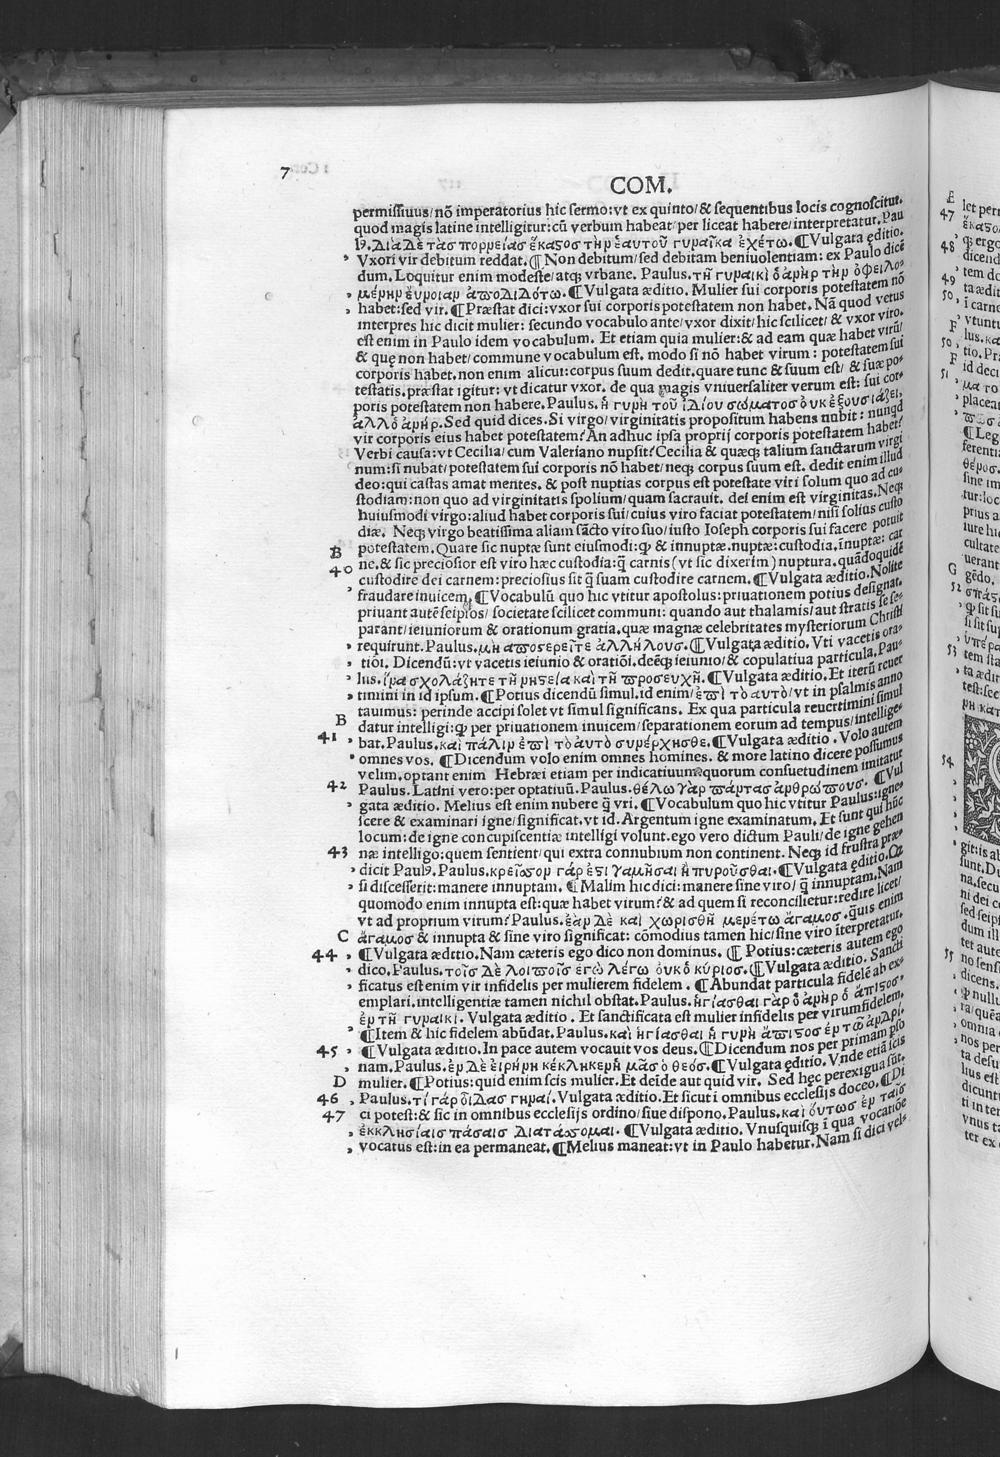 7
COM.
permissiuus/nō imperatorius hic sermo:vt ex quinto/& sequentibus locis cognoscitur.
quod magis latine intelligitur:cū verbum habeat/per liceat habere/interpretatur.Pau
lꝰ.Διὰ Δὲ τὰσ πορνείασ ἕκαστοσ τὴν ἑαυτοῦ γυναῖκα ἐχέτω.¶Vulgata ęditio.
Vxori vir debitum reddat.¶Non debitum/sed debitam beniuolentiam: ex Paulo dicē
dum. Loquitur enim modeste/atqꝫ vrbane. Paulus.τῆ γυναικὶ ὁ ἀνὴρ τὴν ὀφειλο-
μένην ἔυνοιαν ἀποδιδότω.¶Vulgata æditio. Mulier sui corporis potestatem nō
habet:sed vir.¶Præstat dici:vxor sui corporis potestatem non habet. Nā quod vetus
interpres hic dicit mulier: secundo vocabulo ante/vxor dixit/hic scilicet/ & vxor viro.
est enim in Paulo idem vocabulum. Et etiam quia mulier:& ad eam quæ habet virū/
& quę non habet/commune vocabulum est. modo si nō habet virum : potestatem sui
corporis habet.non enim alicui:corpus suum dedit.quare tunc & suum est/ & suæ po-
testatis.præstat igitur: vt dicatur vxor. de qua magis vniuersaliter verum est: sui cor-
poris potestatem non habere.Paulus.ἡ γυνὴ τοῦ ἰδίου σώματοσ ὀυκ ἐξουσιάζει,
ἀλλ' ὁ ἀνήρ.Sed quid dices.Si virgo/virginitatis propositum habens nubit : nunqd
vir corporis eius habet potestatem? An adhuc ipsa proprij corporis potestatem habet?
Verbi causa:vt Cecilia/cum Valeriano nupsit? Cecilia & quæqꝫ talium sanctarum virgi
num:si nubat/potestatem sui corporis nō habet/neqꝫ corpus suum est. dedit enim illud
deo:qui castas amat mentes. & post nuptias corpus est potestate viri solum quo ad cu-
stodiam:non quo ad virginitatis spolium/quam sacrauit. dei enim est virginitas.Neqꝫ
huiusmodi virgo:aliud habet corporis sui/cuius viro faciat potestatem/nisi solius custo
diæ. Neqꝫ virgo beatissima aliam sācto viro suo/iusto Ioseph corporis sui facere potuit
B potestatem.Quare sic nuptæ sunt eiusmodi:ꝙ & innuptæ.nuptæ:custodia.īnuptæ: car
40 ne.& sic preciosior est viro hæc custodia:q̄ carnis (vt sic dixerim) nuptura.quādoquidē
custodire dei carnem:preciosius sit q̄ suam custodire carnem.¶Vulgata æditio.Nolite
fraudare inuicem.¶Vocabulū quo hic vtitur apostolus:priuationem potius designat.
priuant autē seipsos/ societate scilicet communi: quando aut thalamis/aut stratis se se-
parant/ieiuniorum & orationum gratia.quæ magnæ celebritates mysteriorum Christi
requirunt.Paulus.μὴ ἀποστερεῖτε ἀλλήλουσ.¶Vulgata æditio. Vti vacetis ora-
tiōi. Dicendū:vt vacetis ieiunio & oratiōi.deēqꝫ ieiunio/& copulatiua particula.Pau-
lus.ἵνα σχολάζητε τῆ νηστεία καὶ τῆ προσευχῆ.¶Vulgata æditio.Et iterū reuer
timini in id ipsum.¶Potius dicendū simul.id enim/ἐπὶ τὸ αυτὸ/vt in psalmis anno
tauimus: perinde accipi solet vt simul significans. Ex qua particula reuertimini simul
B datur intelligi:ꝙ per priuationem inuicem/separationem eorum ad tempus/intellige-
41 bat.Paulus.καὶ πάλιν ἐπὶ τὸ αυτὸ συνέρχησθε.¶Vulgata æditio . Volo autem
omnes vos. ¶Dicendum volo enim omnes homines. & more latino dicere possumus
velim.optant enim Hebræi etiam per indicatiuum/quorum consuetudinem imitatur
42 Paulus. Latini vero:per optatiuū.Paulus.θέλω γὰρ πάντασ ἀνθρώπουσ. ¶Vul
gata æditio. Melius est enim nubere q̄ vri.¶Vocabulum quo hic vtitur Paulus:igne-
scere & examinari igne/significat.vt id. Argentum igne examinatum. Et sunt qui hūc
locum:de igne concupiscentiæ intelligi volunt.ego vero dictum Pauli/de igne gehen
43 næ intelligo:quem sentient/qui extra connubium non continent. Neqꝫ id frustra præ-
dicit Paulꝰ. Paulus.κρεῖσσον γάρ ἐστι γαμῆσαι ἢ πυροῦσθαι.¶Vulgata ęditio.Qꝫ
si discesserit:manere innuptam. ¶Malim hic dici: manere sine viro/ q̄ innuptam.Nam
quomodo enim innupta est:quæ habet virum?& ad quem si reconcilietur:redire licet/
vt ad proprium virum? Paulus.ἐὰν Δὲ καὶ χωρισθῆ μενέτω ἄγαμοσ.q̄uis enim
C ἄγαμοσ & innupta & sine viro significat: cōmodius tamen hic/sine viro īterpretatur.
44 ¶Vulgata æditio.Nam cæteris ego dico non dominus. ¶ Potius:cæteris autem ego
dico.Paulus.τοῖσ Δὲ λοιποῖσ ἐγὼ λέγω ὀυκ ὁ κύριοσ.¶Vulgata æditio. Sancti
ficatus est enim vir infidelis per mulierem fidelem . ¶Abundat particula fidelē ab ex-
emplari.intelligentiæ tamen nichil obstat.Paulus.ἡγίασθαι γὰρ ὁ ἀνὴρ ὁ ἄπιστοσ
ἐν τῆ γυναικι. Vulgata æditio . Et sanctificata est mulier infidelis per virum fidelem.
¶Item & hic fidelem abūdat.Paulus.καὶ ἡγίασθαι ἡ γυνὴ ἄπιστοσ ἐν τῶ ἀνδρὶ.
45 ¶Vulgata æditio.In pace autem vocauit vos deus.¶Dicendum nos per primam pso
nam.Paulus.ἐν Δὲ εἰρήνη κέκληκεν ἡμᾶσ ὁ θεόσ.¶Vulgata ęditio. Vnde etiā scis
D mulier.¶Potius:quid enim scis mulier.Et deīde aut quid vir. Sed hęc perexigua sūt.
46 Paulus.τί γὰρ ὀιδασ γύναι. Vulgata æditio.Et sicut ī omnibus ecclesijs doceo.¶Di
47 ci potest:& sic in omnibus ecclesijs ordino/siue dispono.Paulus.καὶ ὅυτωσ ἐν ταῖσ
ἐκκλησίαισ πάσαισ Διατάσσομαι. ¶Vulgata æditio. Vnusquisqꝫ ī qua vocatiōe
vocatus est:in ea permaneat.¶Melius maneat:vt in Paulo habetur.Nam si dici vel-